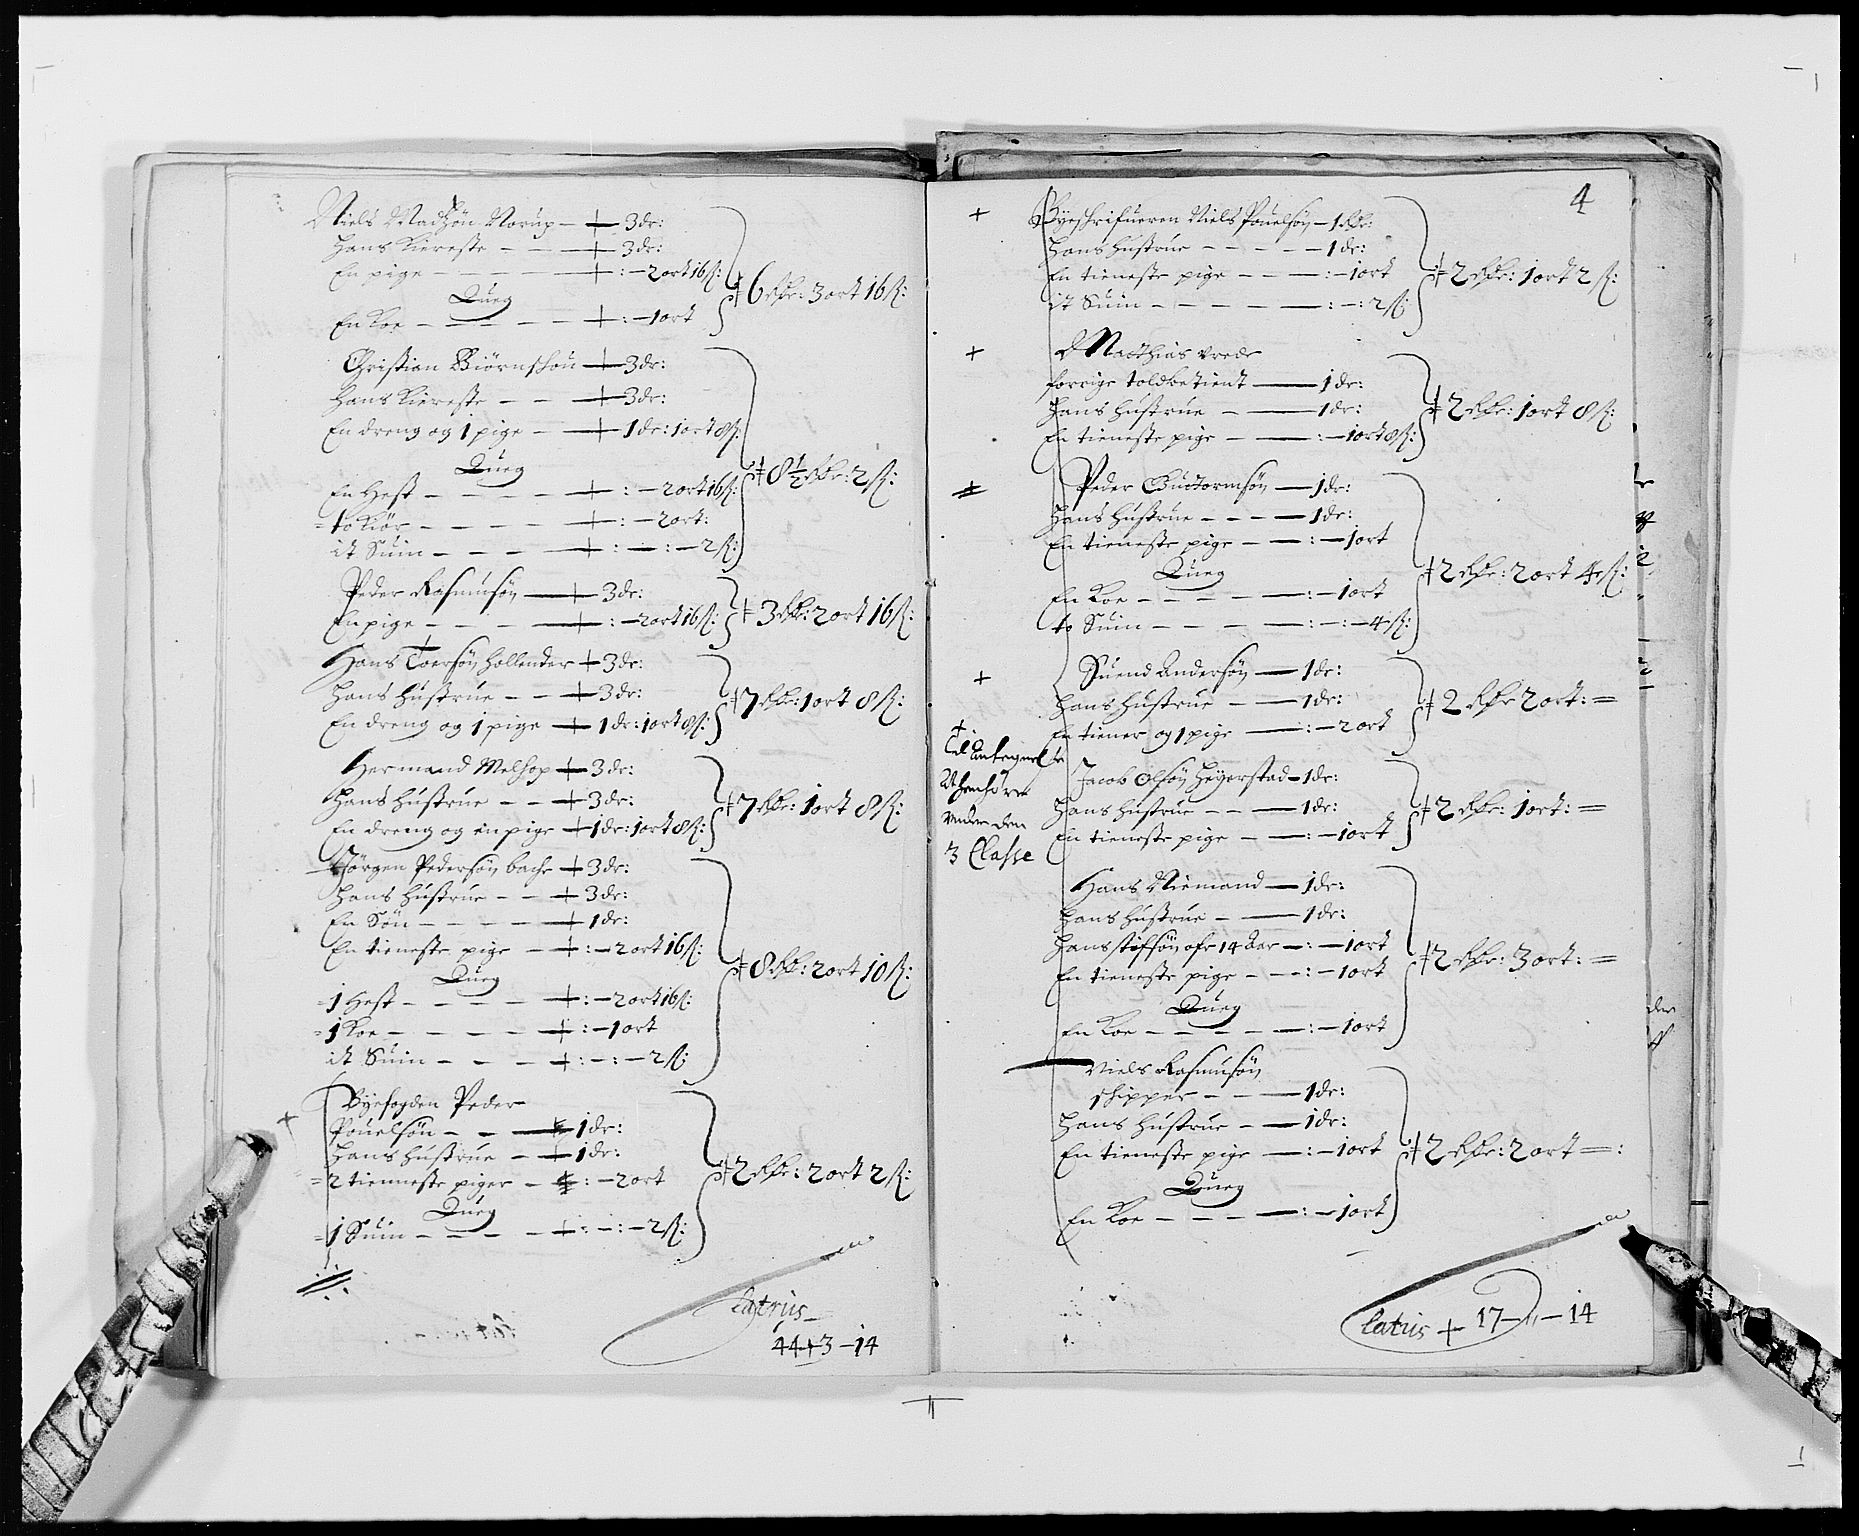 Niels Madtzøn Norup – + 3 dr:
Hans Kiereste – – + 3 dr:
En pige – – – – + : – 2 ort 16 ß:
Queg
En Koe – – – – – + : – 1 ort
6 Rdr: 3 ort 16 ß:
Christian Biørnsøn + 3 dr:
Hans Kiereste – – + 3 dr:
En dreng og 1 pige – + 1 dr: 1 ort 8 ß:
Queg
En Hest – – – – – + : – 2 ort 16 ß:
to Kiør – – – – – + : – 2 ort:
it Suin – – – – + : – : – 2 ß:
8 1/2 Rdr: 2 ß:
Peder Rasmusøn + 3 dr:
En pige – – – – + : – 2 ort 16 ß:
3 Rdr: 2 ort 16 ß:
Hans Toersøn Hollender + 3 dr:
Hans Hustrue – – + 3 dr:
En dreng og 1 pige – + 1 dr: 1 ort 8 ß:
7 Rdr: 1 ort 8 ß:
Hermand Melhop + 3 dr:
Hans Hustrue – – + 3 dr:
En dreng og en pige + 1 dr: 1 ort 8 ß:
7 Rdr: 1 ort 8 ß:
Jørgen Pedersøn bache + 3 dr:
Hans Hustrue – – + 3 dr:
En Søn – – – – + 1 dr:
En tieneste pige – + : – 2 ort 16 ß:
Queg
1 Hest – – – – + : – 2 ort 16 ß:
1 Koe – – – – – + : – 1 ort
it Suin – – – – + : – : – 2 ß:
8 Rdr: 2 ort 10 ß:
Byefogden Peder
Pouelsøn – – – 1 dr:
Hans Hustrue – + 1 dr:
2 tienneste piger – : – 2 ort
Queg
1 Suin – – – – – + : – : – 2 ß:
2 Rdr: 2 ort 2 ß:
Latrus
44 + 3 – 14
4
+ Byeschrifueren Niels Pouelsøn – 1 Rdr:
Hans Hustrue – – – – – 1 dr:
En tieneste pige – – – : – 1 ort
it Suin – – – – – : – : 2 ß:
2 Rdr: 1 ort 2 ß:
+ Mathias Vrede
forrige toldbetient – 1 dr:
Hans Hustrue – – 1 dr:
En tieneste pige – – : – 1 ort 8 ß:
2 Rdr: 1 ort 8 ß:
Peder Guttormsøn – 1 dr:
Hans Hustrue – – – – 1 dr:
En tieneste pige – – : – 1 ort
Queg
En Koe – – – – – : – 1 ort
to Suin – – – – : – : – 4 ß:
2 Rdr: 2 ort 4 ß:
+ Suend Andersøn – 1 dr:
Hans Hustrue – – 1 dr:
En tiener og 1 pige – : – 2 ort
2 Rdr 2 ort: =
+
under den
3 Classe
Jacob Olsøn Hegerstad – 1 dr:
Hans Hustrue – – – 1 dr:
En tieneste pige – – : – 1 ort
2 Rdr: 1 ort: =
Hans Niemand – 1 dr:
Hans Hustrue – – 1 dr:
Hans stifsøn ofr 14 Aar – : – 1 ort
En tieneste pige – – – : – 1 ort
Queg
En Koe – – – – – : – 1 ort
2 Rdr: 3 ort: =
Niels Rasmusøn
schipper – – – 1 dr:
Hans Hustrue – – 1 dr:
En tieneste pige – : – 1 ort
Queg
En Koe – – – – : – 1 ort
2 Rdr: 2 ort = :
Latus + 17 – „ – 14